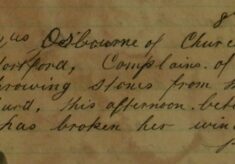 8
us Osbourne of Churc
ortford, Complains of
hrowing stones from
urd, this afternoon bet
has broken her win